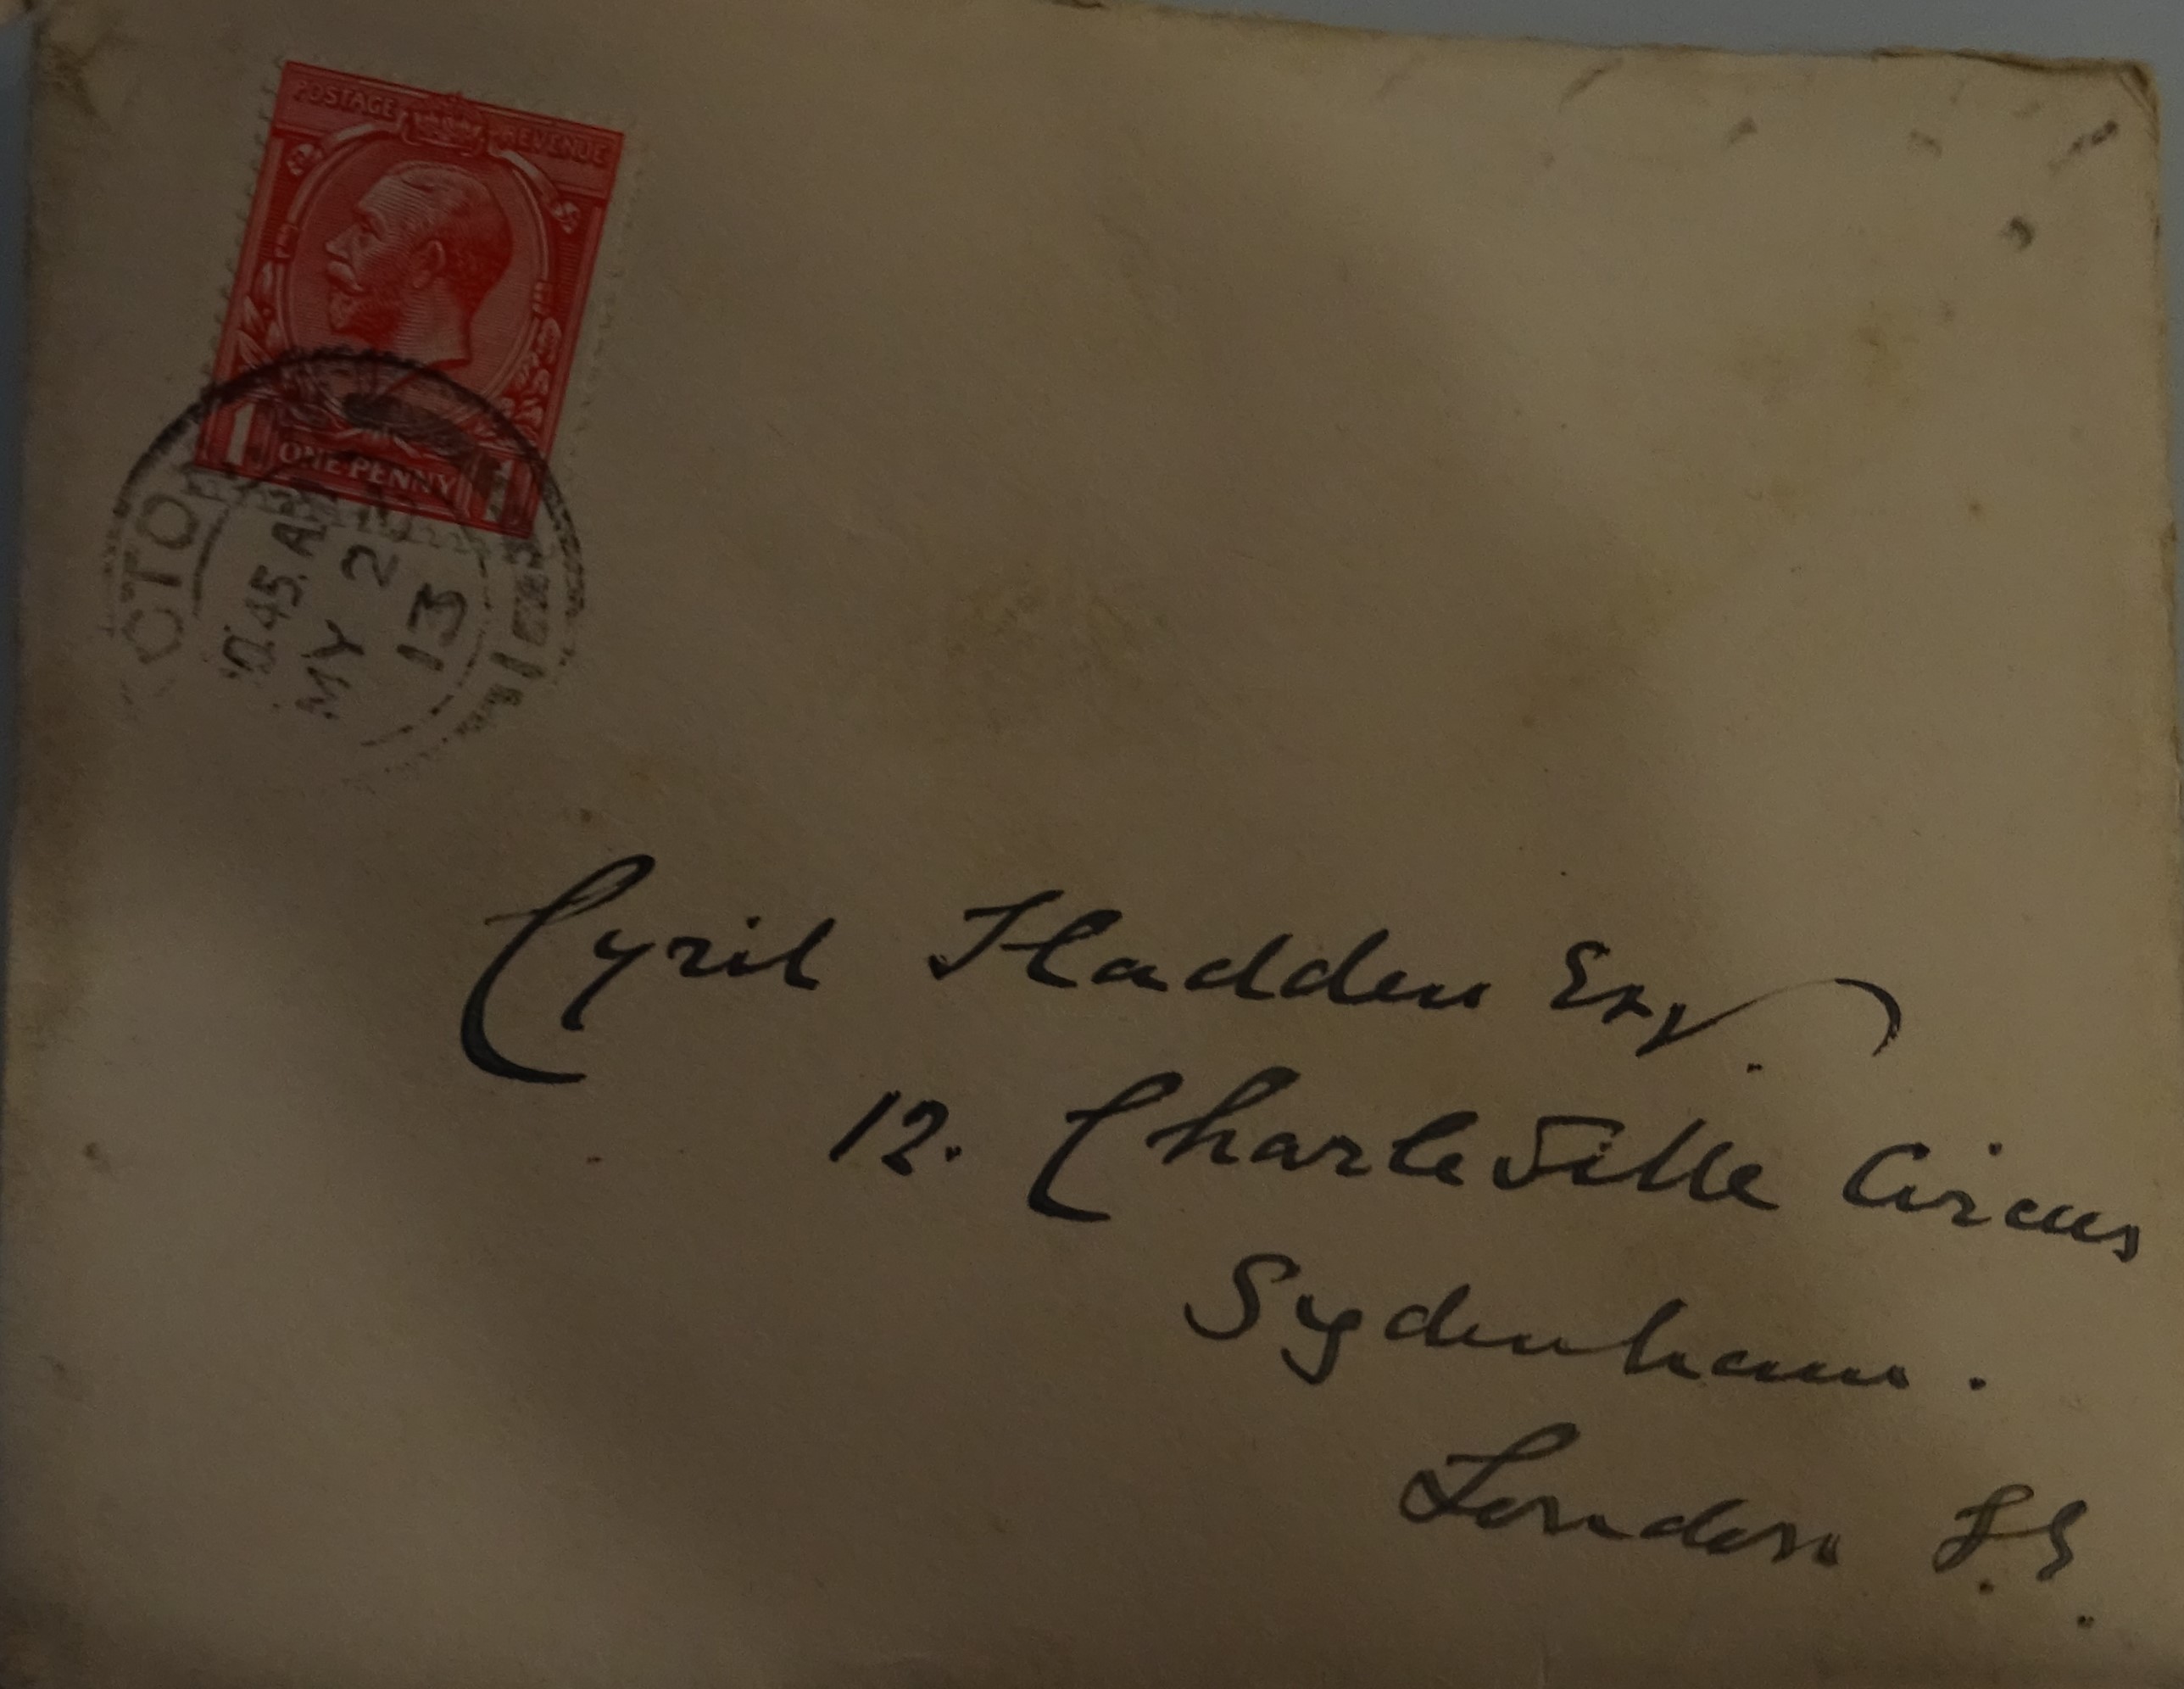 POSTAGE REVENUE
1 ONE PENNY 1
45 A
MY 2
13
Cyril Hadden Esq.
12. Charleville Circus
Sydenham.
London S.E.